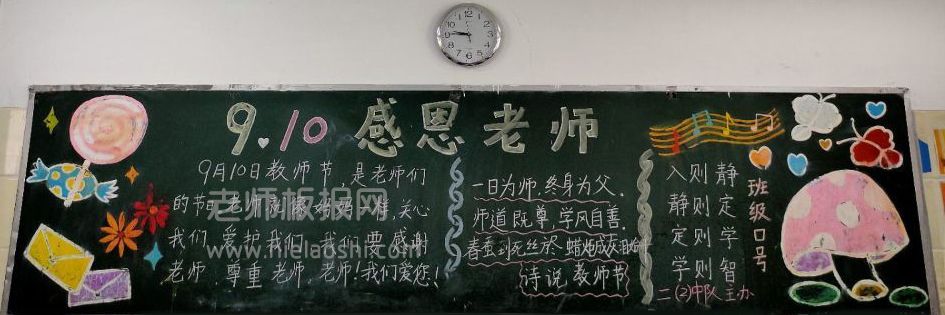 9.10 感恩老师
9月10日教师节,是老师们
的节日,老师就像妈妈一样,关心
我们,爱护我们,我们要感谢
老师,尊重老师,老师!我们爱您!
一日为师.终身为父.
师道既尊 学风自善.
春蚕到死丝方尽
诗说教师节
入则静
静则定
定则学
学则智
班级口号
二(2)中队 主办
老师板报网
www.hielaoshi.com